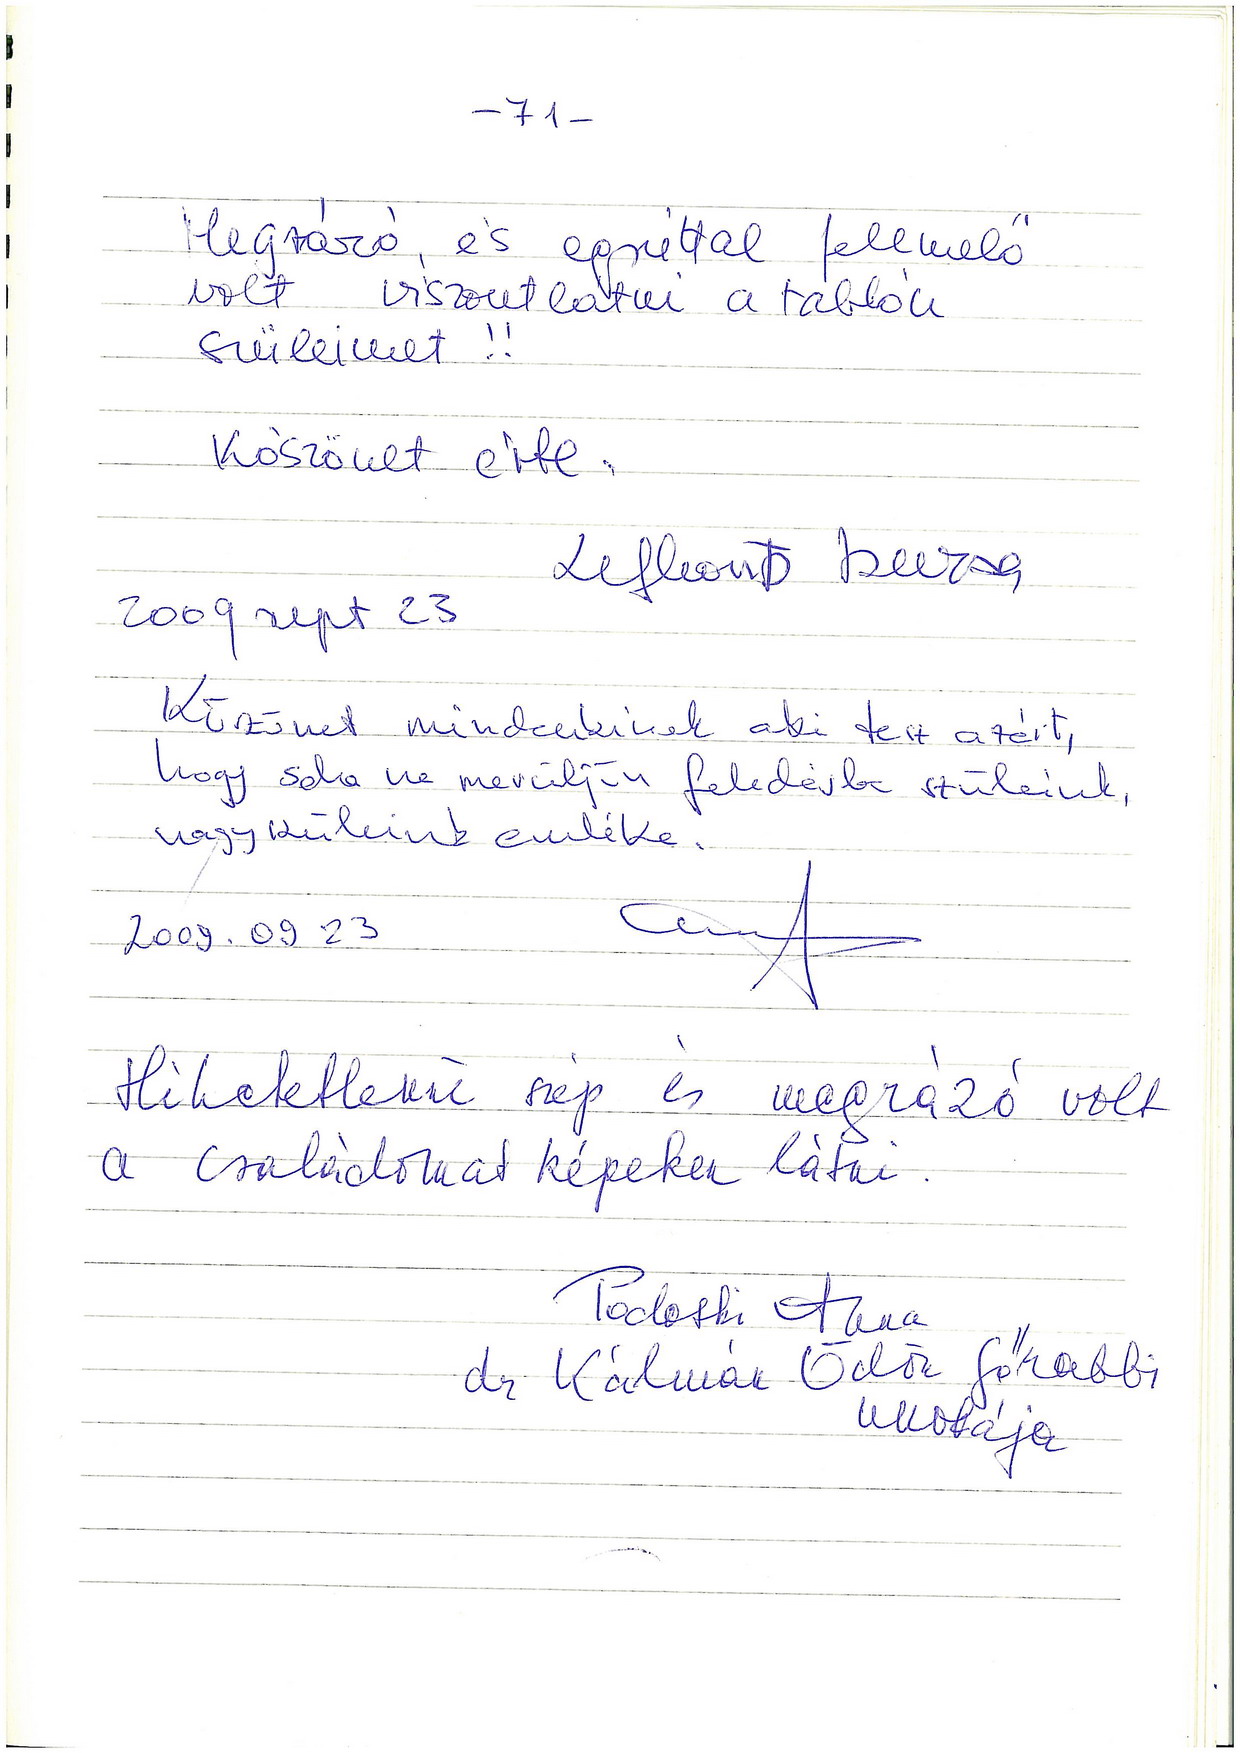 -71-
Megrázó, és egyúttal felemelő
volt viszontlátni a táblón
szüleimet !!
Köszönet érte.
2009 szept 23
Köszönet mindenkinek aki tesz azért,
hogy soha ne merüljön feledésbe szüleink,
nagyszüleink emléke.
2009. 09 23
Hihetetlenül szép és megrázó volt
a családomat képeken látni.
Podoski Anna
dr Kálmán Ödön főrabbi
unokája